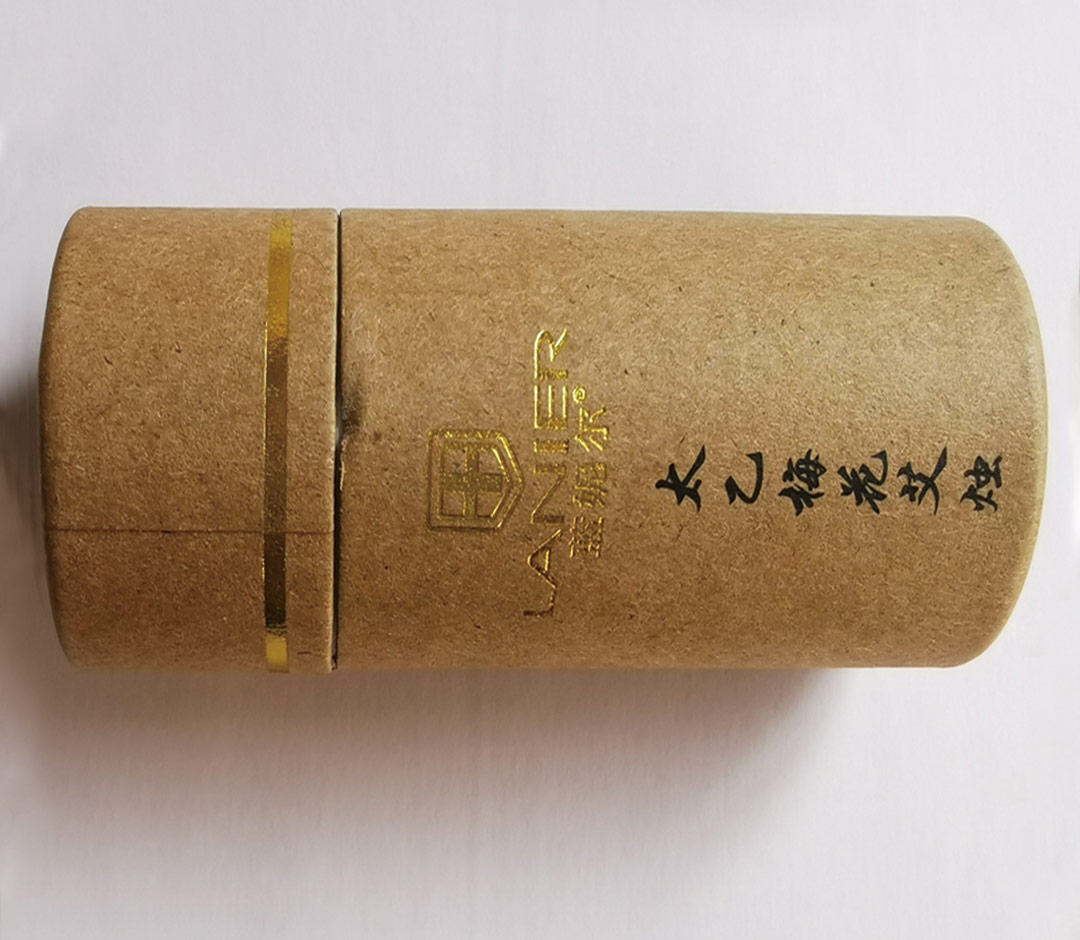 LANIER
蓝妮尔®
太乙梅花艾烛